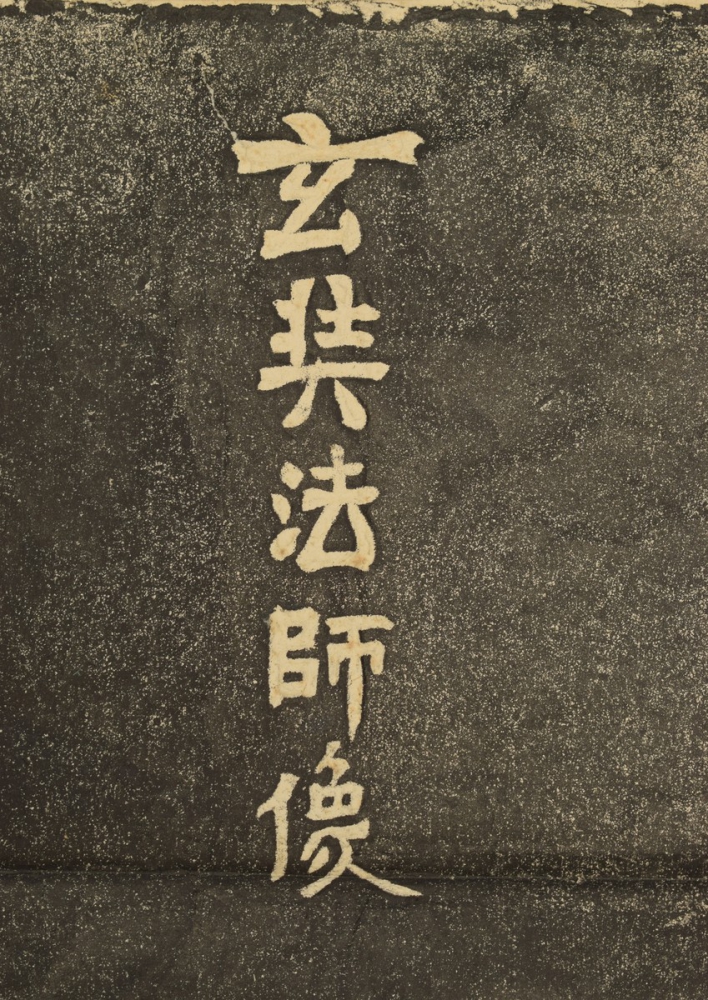 玄奘法師像